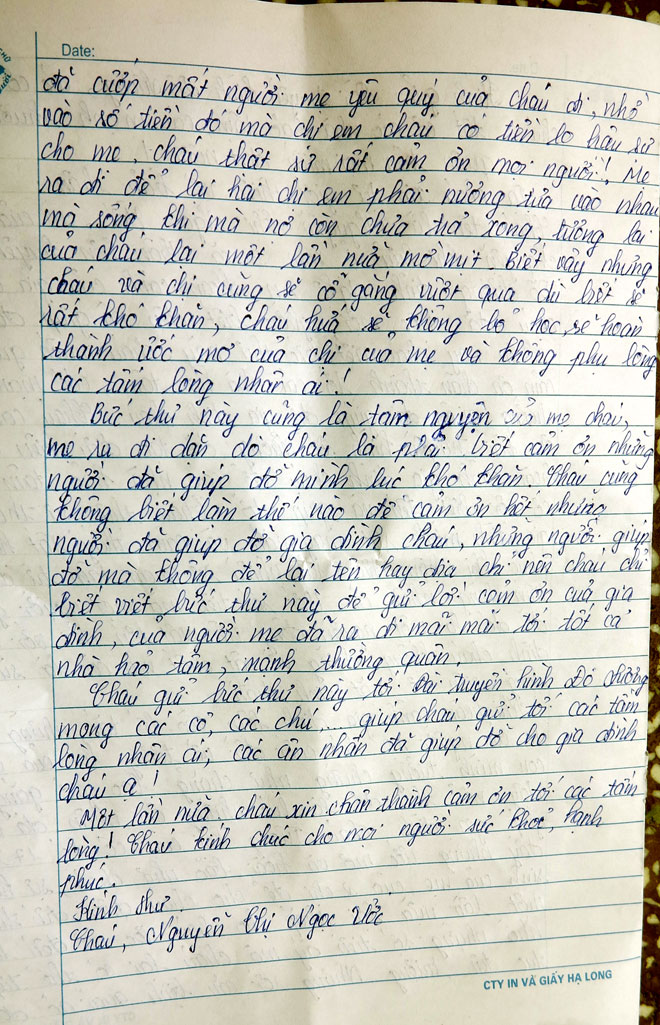 Date:
đã cướp mất người mẹ yêu quý của cháu đi, nhờ
vào số tiền đó mà chị em cháu có tiền lo hậu sự
cho mẹ. cháu thật sự rất cảm ơn mọi người! Mẹ
ra đi để lại hai chị em phải nương tựa vào nhau
mà sống khi mà nợ còn chưa trả xong, tương lai
của cháu lại một lần nữa mờ mịt. Biết vậy nhưng
cháu và chị cũng sẽ cố gắng vượt qua dù biết sẽ
rất khó khăn, cháu hứa sẽ không bỏ học, sẽ hoàn
thành ước mơ của chị của mẹ và không phụ lòng
các tấm lòng nhân ái!
Bức thư này cũng là tâm nguyện của mẹ cháu,
mẹ ra đi dặn dò cháu là phải biết cảm ơn những
người đã giúp đỡ mình lúc khó khăn. Cháu cũng
không biết làm thế nào để cảm ơn hết những
người đã giúp đỡ gia đình cháu, những người giúp
đỡ mà không để lại tên hay địa chỉ nên cháu chỉ
biết viết bức thư này để gửi lời cảm ơn của gia
đình, của người mẹ đã ra đi mãi mãi tới tất cả
nhà hảo tâm, mạnh thường quân.
Cháu gửi bức thư này tới Đài truyền hình Đô lương
mong các cô, các chú... giúp cháu gửi tới các tấm
lòng nhân ái, các ân nhân đã giúp đỡ cho gia đình
cháu ạ!
Một lần nữa, cháu xin chân thành cảm ơn tới các tấm
lòng! Cháu kính chúc cho mọi người sức khoẻ, hạnh
phúc.
Kính thư
Cháu, Nguyễn Thị Ngọc Ước
CTY IN VÀ GIẤY HẠ LONG